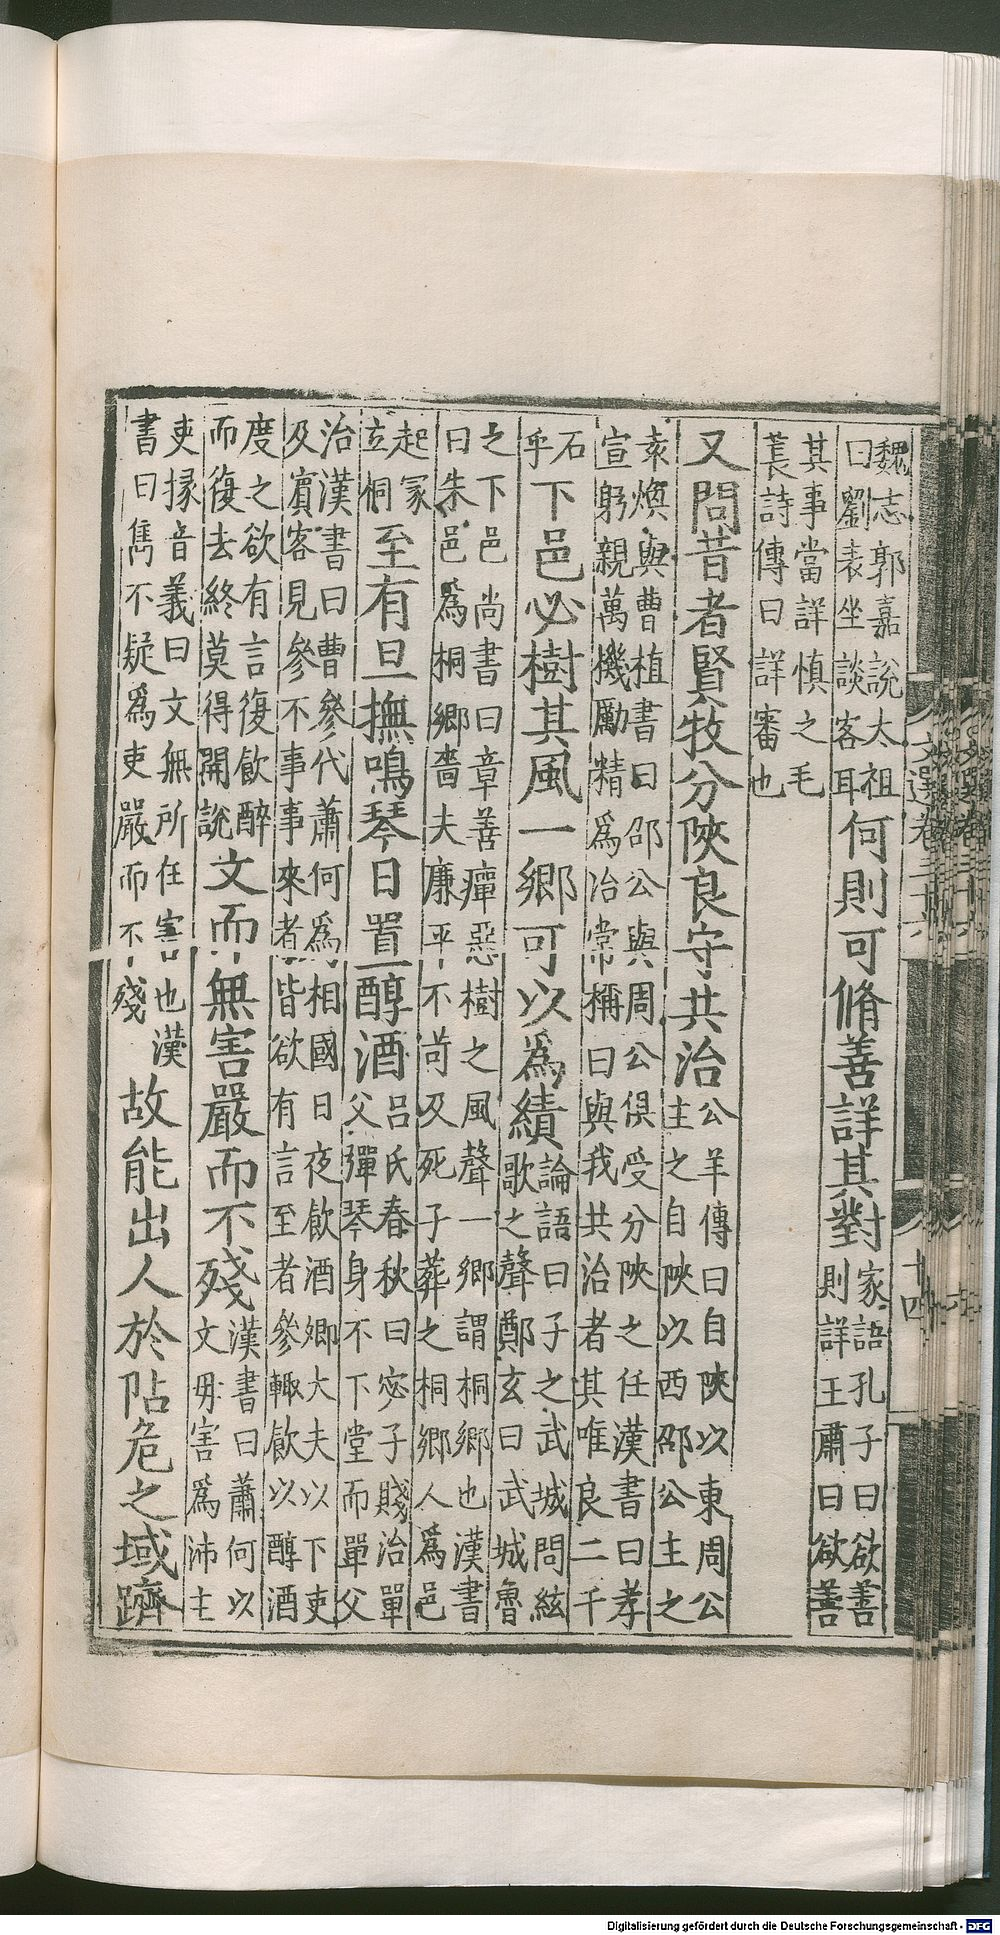 文選卷三十六
十四
魏志郭嘉說太祖
曰劉表坐談客耳
何則可脩善詳其對
家語孔子曰欲善
則詳王肅曰欲善
其事當詳慎之毛
萇詩傳曰詳審也
又問昔者賢牧分陝良守共治
公羊傳曰自陝以東周公
主之自陝以西邵公主之
袁煥與曹植書曰邵公與周公俱受分陝之任漢書曰孝
宣躬親萬機勵精爲治常稱曰與我共治者其唯良二千
石
乎
下邑必樹其風一鄉可以爲績
論語曰子之武城問絃
歌之聲鄭玄曰武城魯
之下邑尚書曰章善癉惡樹之風聲一鄉謂桐鄉也漢書
曰朱邑爲桐鄉嗇夫廉平不苛及死子葬之桐鄉人爲邑
起冢
立桐
至有旦撫鳴琴日置醇酒
呂氏春秋曰宓子賤治單
父彈琴身不下堂而單父
治漢書曰曹參代蕭何爲相國日夜飲酒卿大夫以下吏
及賓客見參不事事來者皆欲有言至者參輒飲以醇酒
度之欲有言復飲醉
而復去終莫得開說
文而無害嚴而不殘
漢書曰蕭何以
文毋害爲沛主
吏掾音義曰文無所枉害也漢
書曰雋不疑爲吏嚴而不殘
故能出人於阽危之域躋
Digitalisierung gefördert durch die Deutsche Forschungsgemeinschaft - DFG